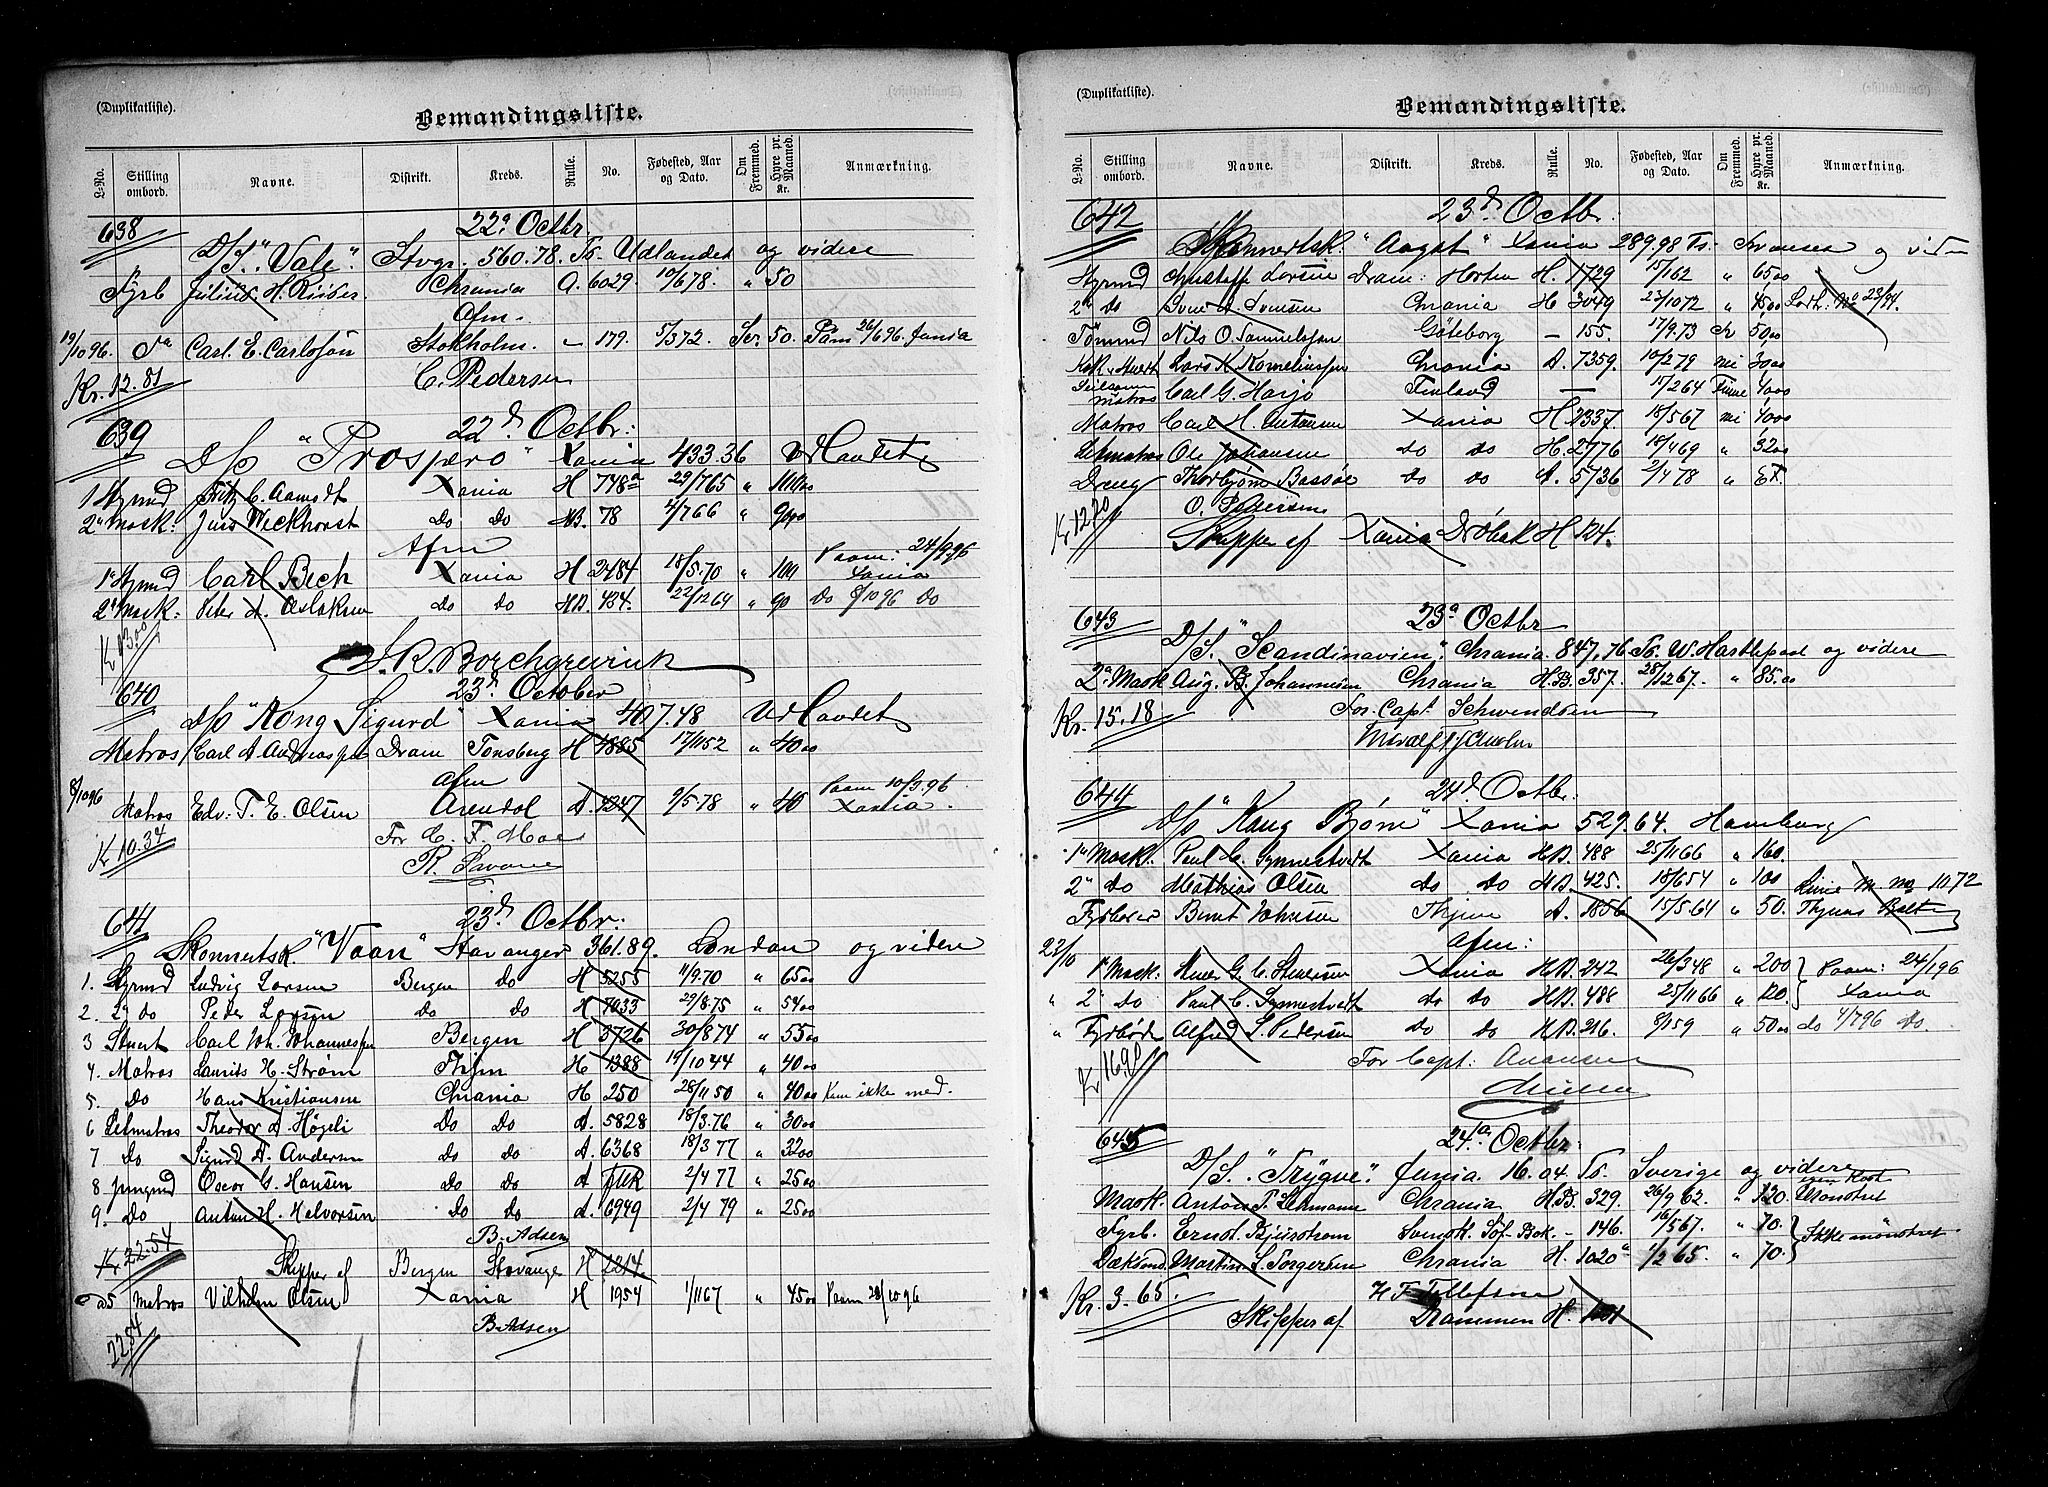 (Duplikatliste).
Bemandingsliste.
L-No. Stilling ombord. Navne. Distrikt. Kreds. Rulle. No. Fødested, Aar og Dato. Om Fremmed. Hyre pr. Maaned. Kr. Anmærkning.
638 22d Octbr.
D/S. "Vale". Stvgr. 560.78. Ts. Udlandet og videre
Fyrb Julius H. Riiser. Chrania A. 6029. 10/6 78. " 50
Afm.
19/10 96. Do Carl. E. Carlsson Stokholm. - 179. 5/3 72. Sv. 50. Paam 26/6 96. Xania
Kr. 12.81 C. Pedersen
639 22d Octbr:
D/S "Prospero" Xania 433.36 Udlandet
1 Styrmd Fritz C. Aamodt Xania H 748a 29/7 65 " 100
2" Mask: Jus Weckhorst Do Do HB. 78 2/7 66 " 90
Afm
1" Styrmd Carl Bech Xania H 2484 18/5.70 " 100 Paam: 24/9 96 Xania
2" Mask. Peter A. Aslaksen do do HB. 484. 22/12 64 " 90 Do 8/10 96 Do
Kr 13.00
S. R. Borchgrevink
640 23d October
D/S "Kong Sigurd" Xania 407.48 Udlandet
Matros Carl A Andreassen Dram Tonsberg H 4885 17/11 52 " 40 00
Afm
8/10 96 Matros Edv. T. E. Olsen Arendal A. 4247 9/5.78 " 40 Paam 10/3.96 Xania
Kr 10.34 For C. F. Moe
641 23d Octbr:
Skonnertsk. "Vaan" Stavanger 361.89. London og videre
1. Styrmd Ludvig Larsen Bergen do H 5255 11/9.70 " 65 00
2. 2" do Peder Larsen do do H 7033 29/8.75 " 54 00
3 Stuert Carl Joh. Johannessen Bergen H 3726 30/8 74 " 55 00
4. Matros Laurits H. Strøm Thjm H 1388 19/10 44 " 40 00
5. Do Hans Kristiansen Chrania H 250 28/11 50 " 40 00 Kom ikke med.
6 Letmatros Theodor A. Høgeli Do Do A. 5828 18/3.76 " 30 00
7 Do Sigurd A. Andersen do do A. 6368 18/3 77 " 32 00
8 Jungmd Oscar G. Hansen Do Do A 2/4 77 " 25 00
9. Do Anton H. Halvorsen Do do A. 6949 2/4 79 " 25 00
B. Adsen
Kr 22.54 Skipper af Bergen Stavanger H 1214
a5 Matros Vilhelm Olsen Xania H 1954 1/11 67 " 45 00 Paam 23/10 96
B. Adsen
22.54
(Duplikatliste).
Bemandingsliste.
L-No. Stilling ombord. Navne. Distrikt. Kreds. Rulle. No. Fødested, Aar og Dato. Om Fremmed. Hyre pr. Maaned. Kr. Anmærkning.
642 23d Octbr.
Skonnertsk. "August" Xania 289.98 Ts. Swansea og vid
Styrmd Christoffe Larsen Dram: Horten H. 1729 15/1 62 " 65 00
2" do Sven A. Svensen Chrania H 3049 23/10 72 " 45 00
Tømmd Nils O. Samuelsson Göteborg - 155. 17/9.73 Sv 50,00
Kok & Stuert Lars K. Kornelinssen Chrania A. 7359. 10/2 79 nei 30 00
Seilsömm Matros Carl G. Harjo Finland — 17/2 64 Finne 40 00
Matros Carl H. Antonsen Xania H 2337. 18/5 67 nei 40 00
Letmatros Ole Johansen do do H. 2776 18/4 69 " 32 00
Dreng Thorbjørn Bassøe do do A. 5736 2/4 78 "
Kr 12.70 O. Pedersen
Skipper af Xania Drøbak H 124.
643 23d Octbr
D/S. "Scandinavien". Chrania. 847,76 Ts. W. Hartlepool og videre
2" Mask Aug. B. Johannesen Chrania H.B. 357. 28/12 67. " 85.00
Kr. 15.18 For Capt. Schwendsen
644 24d Octbr.
D/S "Kong Bjørn" Xania 529.64. Hamburg
1" Mask. Paul C. Synnestvedt Xania HB. 488 25/11 66 " 160.
2" do Mathias Olsen do Do HB. 425. 18/6 54 " 100
Fyrbøder Bernt Johnsen Thjem A. 1856 15/5.64 " 50.
Afm:
22/10 1" Mask. G. C. Stenersen Xania HB. 242 26/3 48 " 200 Paam: 24/1 96
" 2" do Paul C. Synnestvedt do do HB. 488 25/11 66 " 120. Xania
" Fyrbød Alfred L. Pedersen do do HB. 216. 8/1 59 " 50 00 do 4/7 96 Do
For Capt:
645 24d Octbr.
D/S. "Trygve". Xania. 16.04 Ts. Sverige og videre
Mask. Anton P. Lehmann Chrania H.B. 329. 26/9 62. " 120. egen Kost Udmönstret
Fyrb. Ernst. Bjurstrom Svensk Söf. Bok. - 146. 16/5 67. " 70. Ikke mönstret
Dæksmd. Martin L. Torgersen Chrania H. 1020a 1/2 65 " 70.
Kr. 3.65. H F Tellefsen
Skipper af Drammen H.